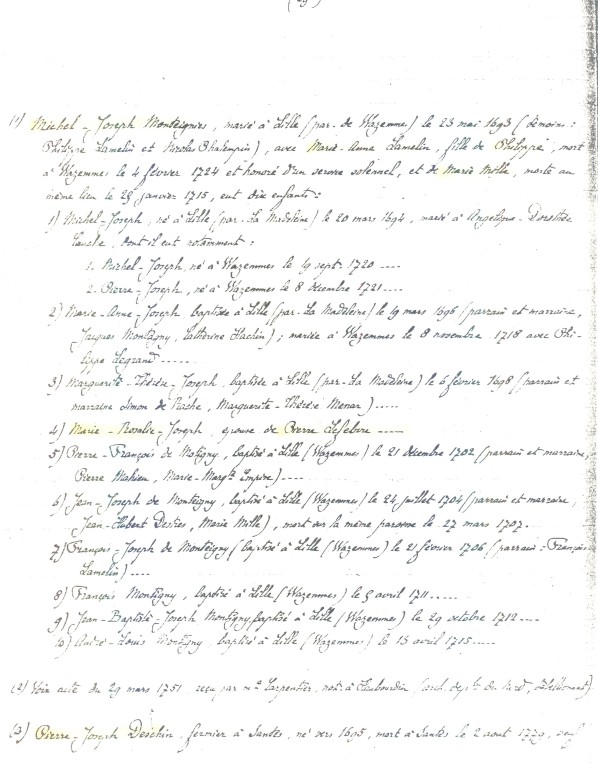 (1) Michel-Joseph Monteignies, marié à Lille (par. de Wazemmes) le 23 mai 1693 (témoins :
Philippe Lamelin et Nicolas), avec Marie-Anne Lamelin, fille de Philippe, mort
à Wazemmes le 4 février 1724 et honoré d'un service solennel, et de Marie Mille, morte au
même lieu le 29 janvier 1715, eut dix enfants :
1) Michel-Joseph, né à Lille (par. La Madeleine) le 20 mars 1694, marié à Angélique-Dorothée
dont il eut notamment :
1. Michel-Joseph, né à Wazemmes le 19 sept. 1720 ....
2. Pierre-Joseph, né à Wazemmes le 8 décembre 1721 ....
2) Marie-Anne-Joseph, baptisée à Lille (par. La Madeleine) le 19 mars 1696 (parrain et marraine,
Jacques Montagny, Catherine) ; mariée à Wazemmes le 8 novembre 1718 avec Phi-
lippe Legrand .....
3) Marguerite-Thérèse-Joseph, baptisée à Lille (par. La Madeleine) le 6 février 1698 (parrain et
marraine Simon de, Marguerite-Thérèse Menar) .....
4) Marie-Rosalie-Joseph, épouse de Pierre Lefebvre ....
5) Pierre-François de Motigny, baptisé à Lille (Wazemmes) le 21 décembre 1702 (parrain et marraine,
Pierre Mahieu, Marie-Marg.te Empire) ....
6) Jean-Joseph de Monteigny, baptisé à Lille (Wazemmes) le 24 juillet 1704 (parrain et marraine,
Jean-Hubert, Marie Mille), mort sur la même paroisse le 27 mars 1707.
7) François-Joseph de Monteigny (baptisé à Lille (Wazemmes) le 21 février 1706 (parrain : François
Lamelin) ....
8) François Montigny, baptisé à Lille (Wazemmes) le avril 1711 .....
9) Jean-Baptiste-Joseph Montigny, baptisé à Lille (Wazemmes) le 29 octobre 1712 ....
10) André-Louis Montigny, baptisé à Lille (Wazemmes) le 13 avril 1715 .....
(2) Voir acte du 29 mars 1751, reçu par me Carpentier, not. à Haubourdin (arch. dép.les du Nord,).
(3) Pierre-Joseph Deschin, fermier à Santes, né vers 1695, mort à Santes le 2 aout 1779,